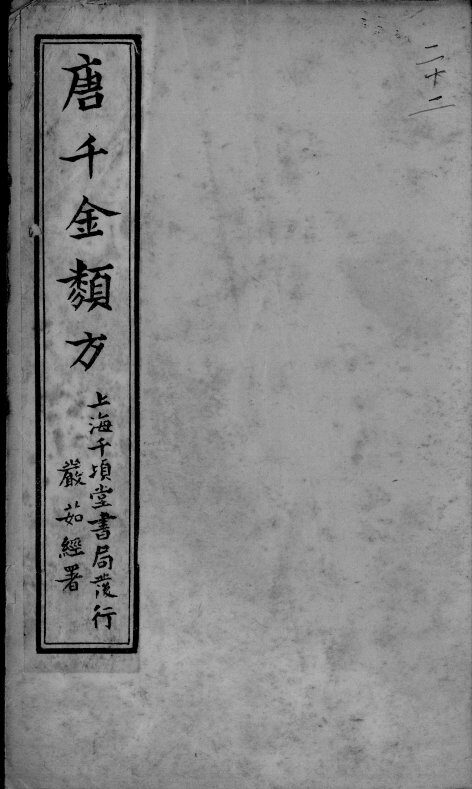 二十二
唐千金類方
上海千頃堂書局發行
嚴茹經署